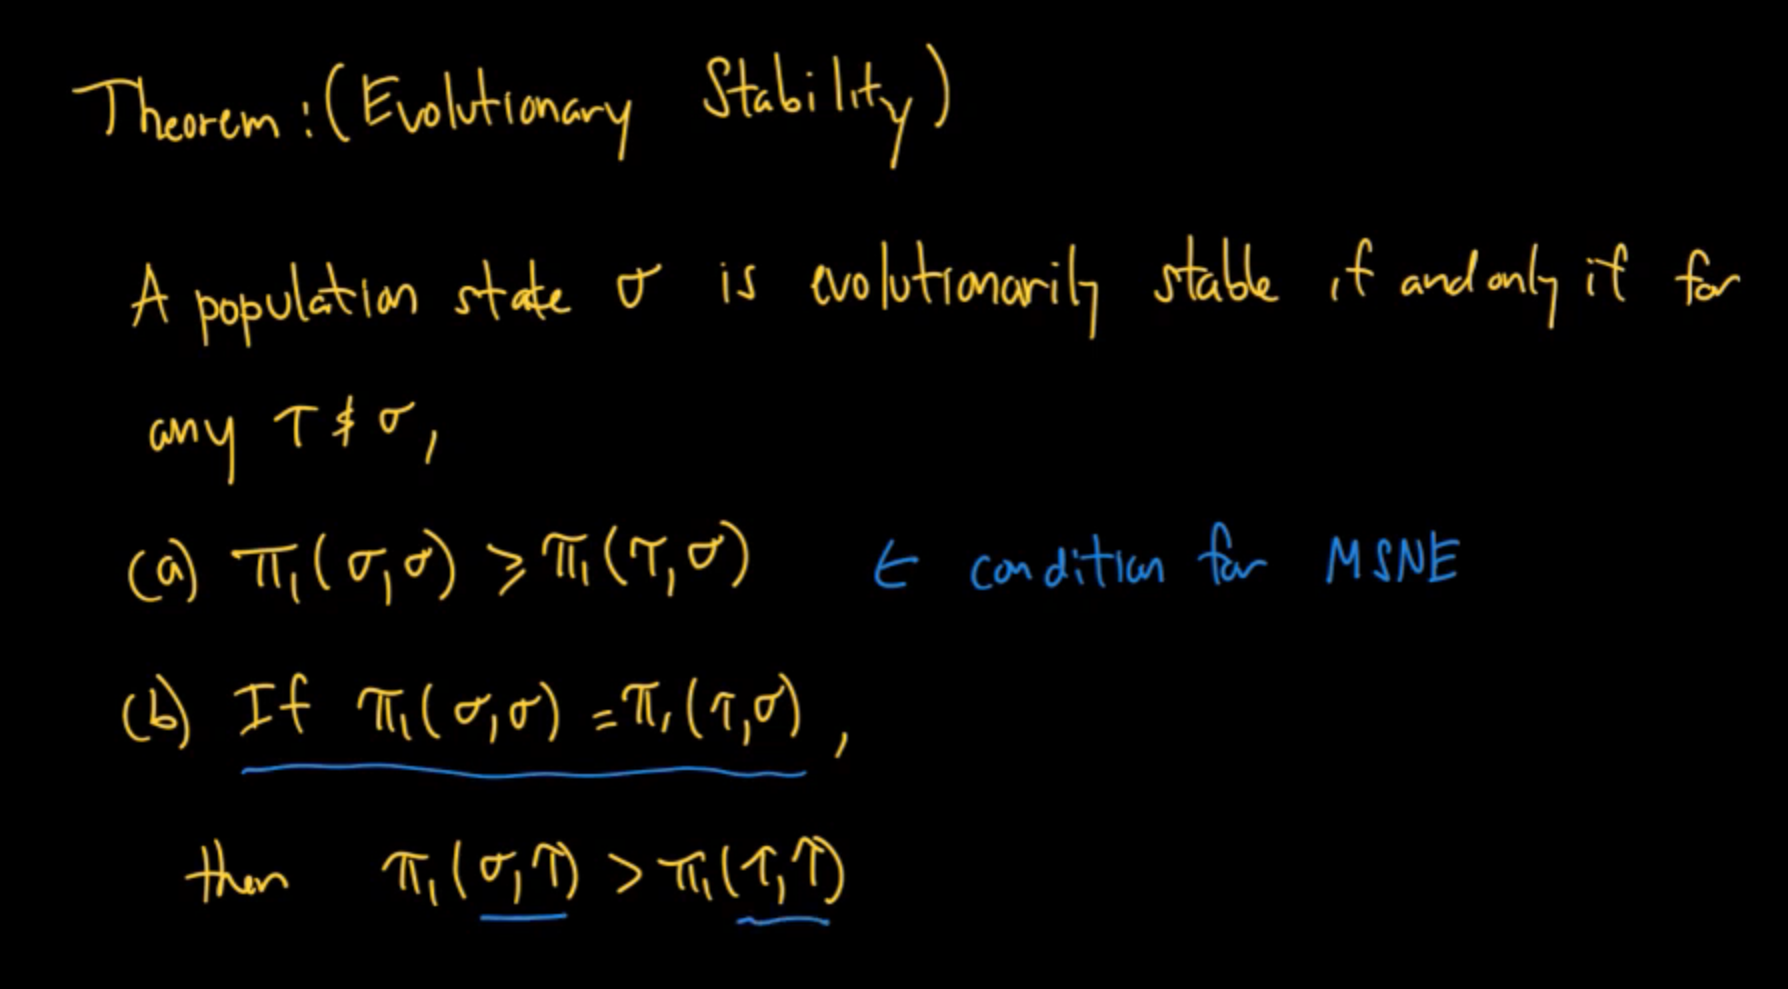 Theorem: (Evolutionary Stability)
A population state σ is evolutionarily stable if and only if for
any τ ≠ σ,
(a) π₁(σ,σ) ≥ π₁(τ,σ) ← condition for MSNE
(b) If π₁(σ,σ) = π₁(τ,σ),
then π₁(σ,τ) > π₁(τ,τ)